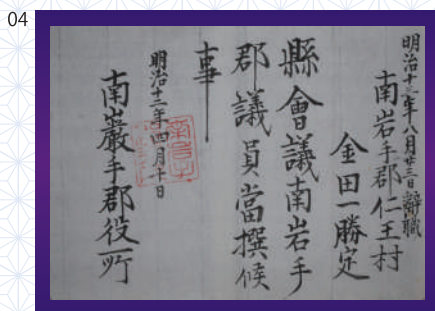 04
明治十三年八月廿三日辭職
南岩手郡仁王村
金田一勝定
縣會議南岩手
郡議員當撰候
事
明治十二年四月十日
南巖手郡役所